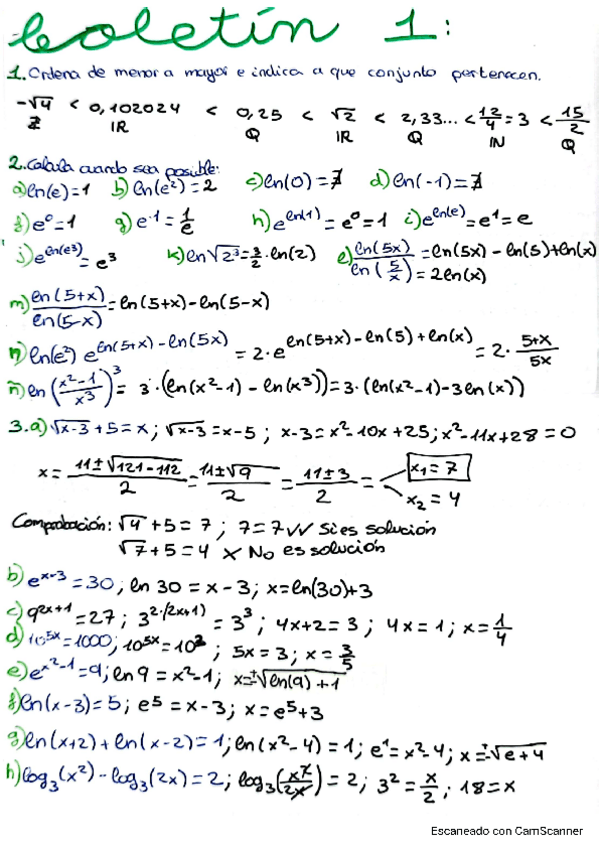 boletín 1:
1. Ordena de menor a mayor e indica a que conjunto pertenecen.
-√4 < 0,102024 < 0,25 < √2 < 2,33... < 12/4 = 3 < 15/2
Z IR Q IR Q IN Q
2. Calcula cuando sea posible:
a) ln(e) = 1 b) ln(e²) = 2 c) ln(0) = ∄ d) ln(-1) = ∄
f) e⁰ = 1 g) e⁻¹ = 1/e h) e^(ln(1)) = e⁰ = 1 i) e^(ln(e)) = e¹ = e
j) e^(ln(e³)) = e³ k) ln√2³ = 3/2 · ln(2) l) ln(5x)/ln(5/x) = ln(5x) - ln(5) + ln(x)
= 2ln(x)
m) ln(5+x)/ln(5-x) = ln(5+x) - ln(5-x)
n) ln(e²) e^(ln(5+x) - ln(5x)) = 2 · e^(ln(5+x) - ln(5) + ln(x)) = 2 · (5+x)/5x
ñ) ln((x²-1)/x³)³ = 3 · (ln(x²-1) - ln(x³)) = 3 · (ln(x²-1) - 3ln(x))
3. a) √x-3 + 5 = x ; √x-3 = x-5 ; x-3 = x² - 10x + 25 ; x² - 11x + 28 = 0
x = (11 ± √121-112)/2 = (11 ± √9)/2 = (11 ± 3)/2 = x₁ = 7
x₂ = 4
Comprobación: √4 + 5 = 7 ; 7 = 7 ✓✓ Si es solución
√7 + 5 = 4 × No es solución
b) e^(x-3) = 30 ; ln 30 = x - 3 ; x = ln(30) + 3
c) 9^(2x+1) = 27 ; 3^(2·(2x+1)) = 3³ ; 4x + 2 = 3 ; 4x = 1 ; x = 1/4
d) 10^(5x) = 1000 ; 10^(5x) = 10³ ; 5x = 3 ; x = 3/5
e) e^(x²-1) = 9 ; ln 9 = x² - 1 ; x = ±√ln(9) + 1
f) ln(x-3) = 5 ; e⁵ = x - 3 ; x = e⁵ + 3
g) ln(x+2) + ln(x-2) = 1 ; ln(x²-4) = 1 ; e¹ = x² - 4 ; x = ±√e + 4
h) log₃(x²) - log₃(2x) = 2 ; log₃(x²/2x) = 2 ; 3² = x/2 ; 18 = x
Escaneado con CamScanner